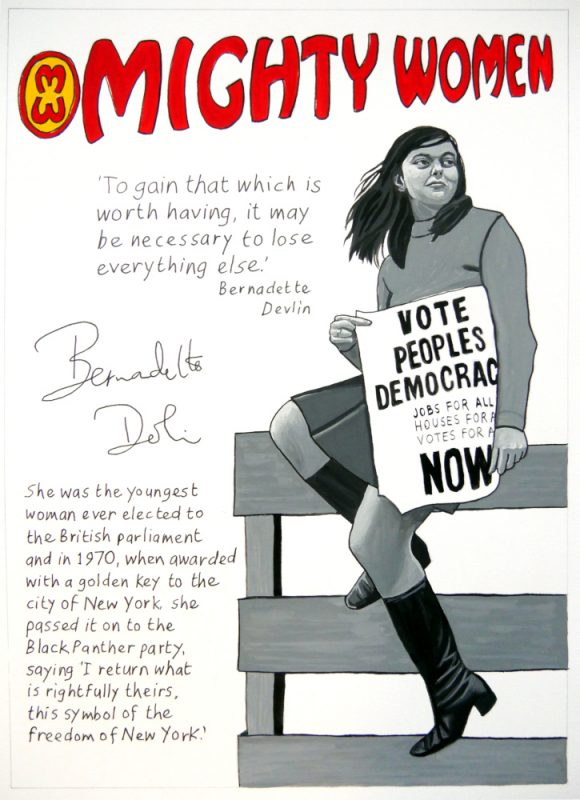 MIGHTY WOMEN
'To gain that which is
worth having, it may
be necessary to lose
everything else.'
Bernadette
Devlin
Bernadette
Devlin
VOTE
PEOPLES
DEMOCRAC
JOBS FOR ALL
HOUSES FOR A
VOTES FOR A
NOW
She was the youngest
woman ever elected to
the British parliament
and in 1970, when awarded
with a golden key to the
city of New York, she
passed it on to the
Black Panther party,
saying 'I return what
is rightfully theirs,
this symbol of the
freedom of New York.'